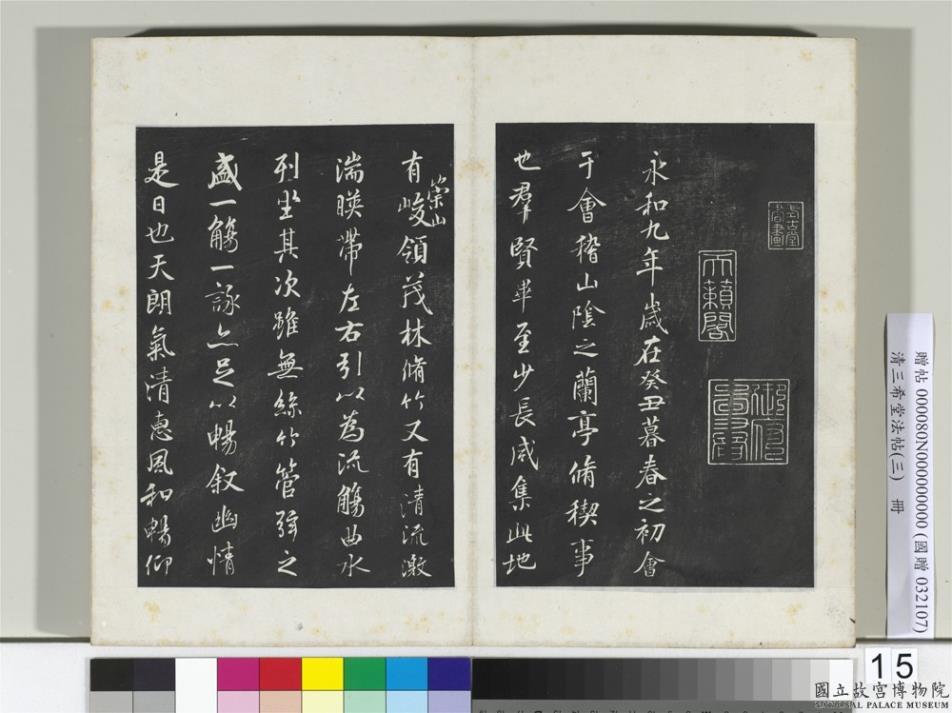 永和九年歲在癸丑暮春之初會
于會稽山陰之蘭亭脩稧事
也羣賢畢至少長咸集此地
有崇山峻領茂林脩竹又有清流激
湍暎帶左右引以為流觴曲水
列坐其次雖無絲竹管弦之
盛一觴一詠亦足以暢叙幽情
是日也天朗氣清惠風和暢仰
天籟閣
贈帖 000080N000000000 (國贈 032107)
清三希堂法帖(三) 冊
15
國立故宮博物院
NATIONAL PALACE MUSEUM